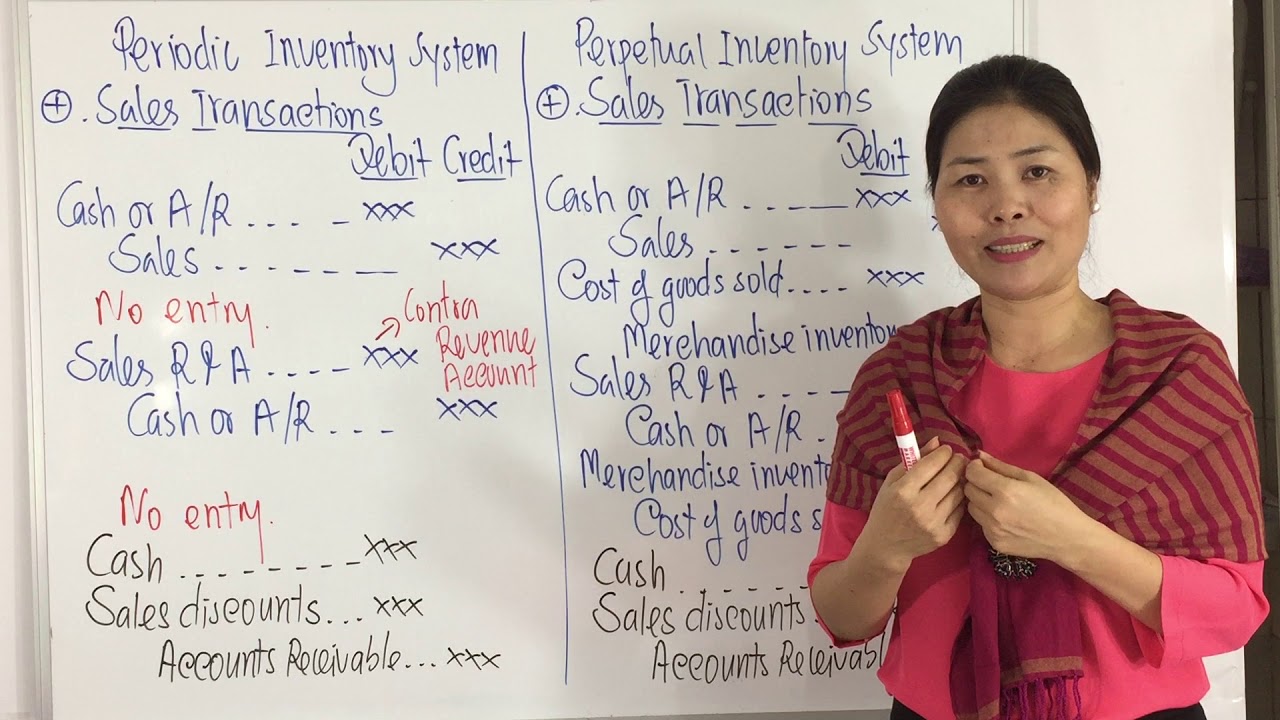 Periodic Inventory System
⊕. Sales Transactions
Debit Credit
Cash or A/R .... - xxx
Sales ------- xxx
No entry.
Contra
Revenue
Account
Sales R&A .... - xxx
Cash or A/R --- xxx
No entry.
Cash .-------- xxx
Sales discounts... xxx
Accounts Receivable... xxx
Perpetual Inventory System
⊕. Sales Transactions
Debit
Cash or A/R .---- xxx
Sales .------
Cost of goods sold.... xxx
Merchandise inventory
Sales R&A .----
Cash or A/R .
Merchandise
Cost of goods
Cash .-----
Sales discounts
Accounts